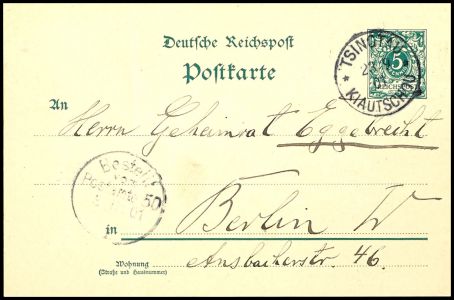 Deutsche Reichspost
Postkarte
TSINGTAU
KIAUTSCHOU
5
An
Herrn Geheimrat Eggebrecht
Bestellt
vom
Postamte 50
01
in Berlin W
Ansbacherstr. 46.
Wohnung
(Straße und Hausnummer)